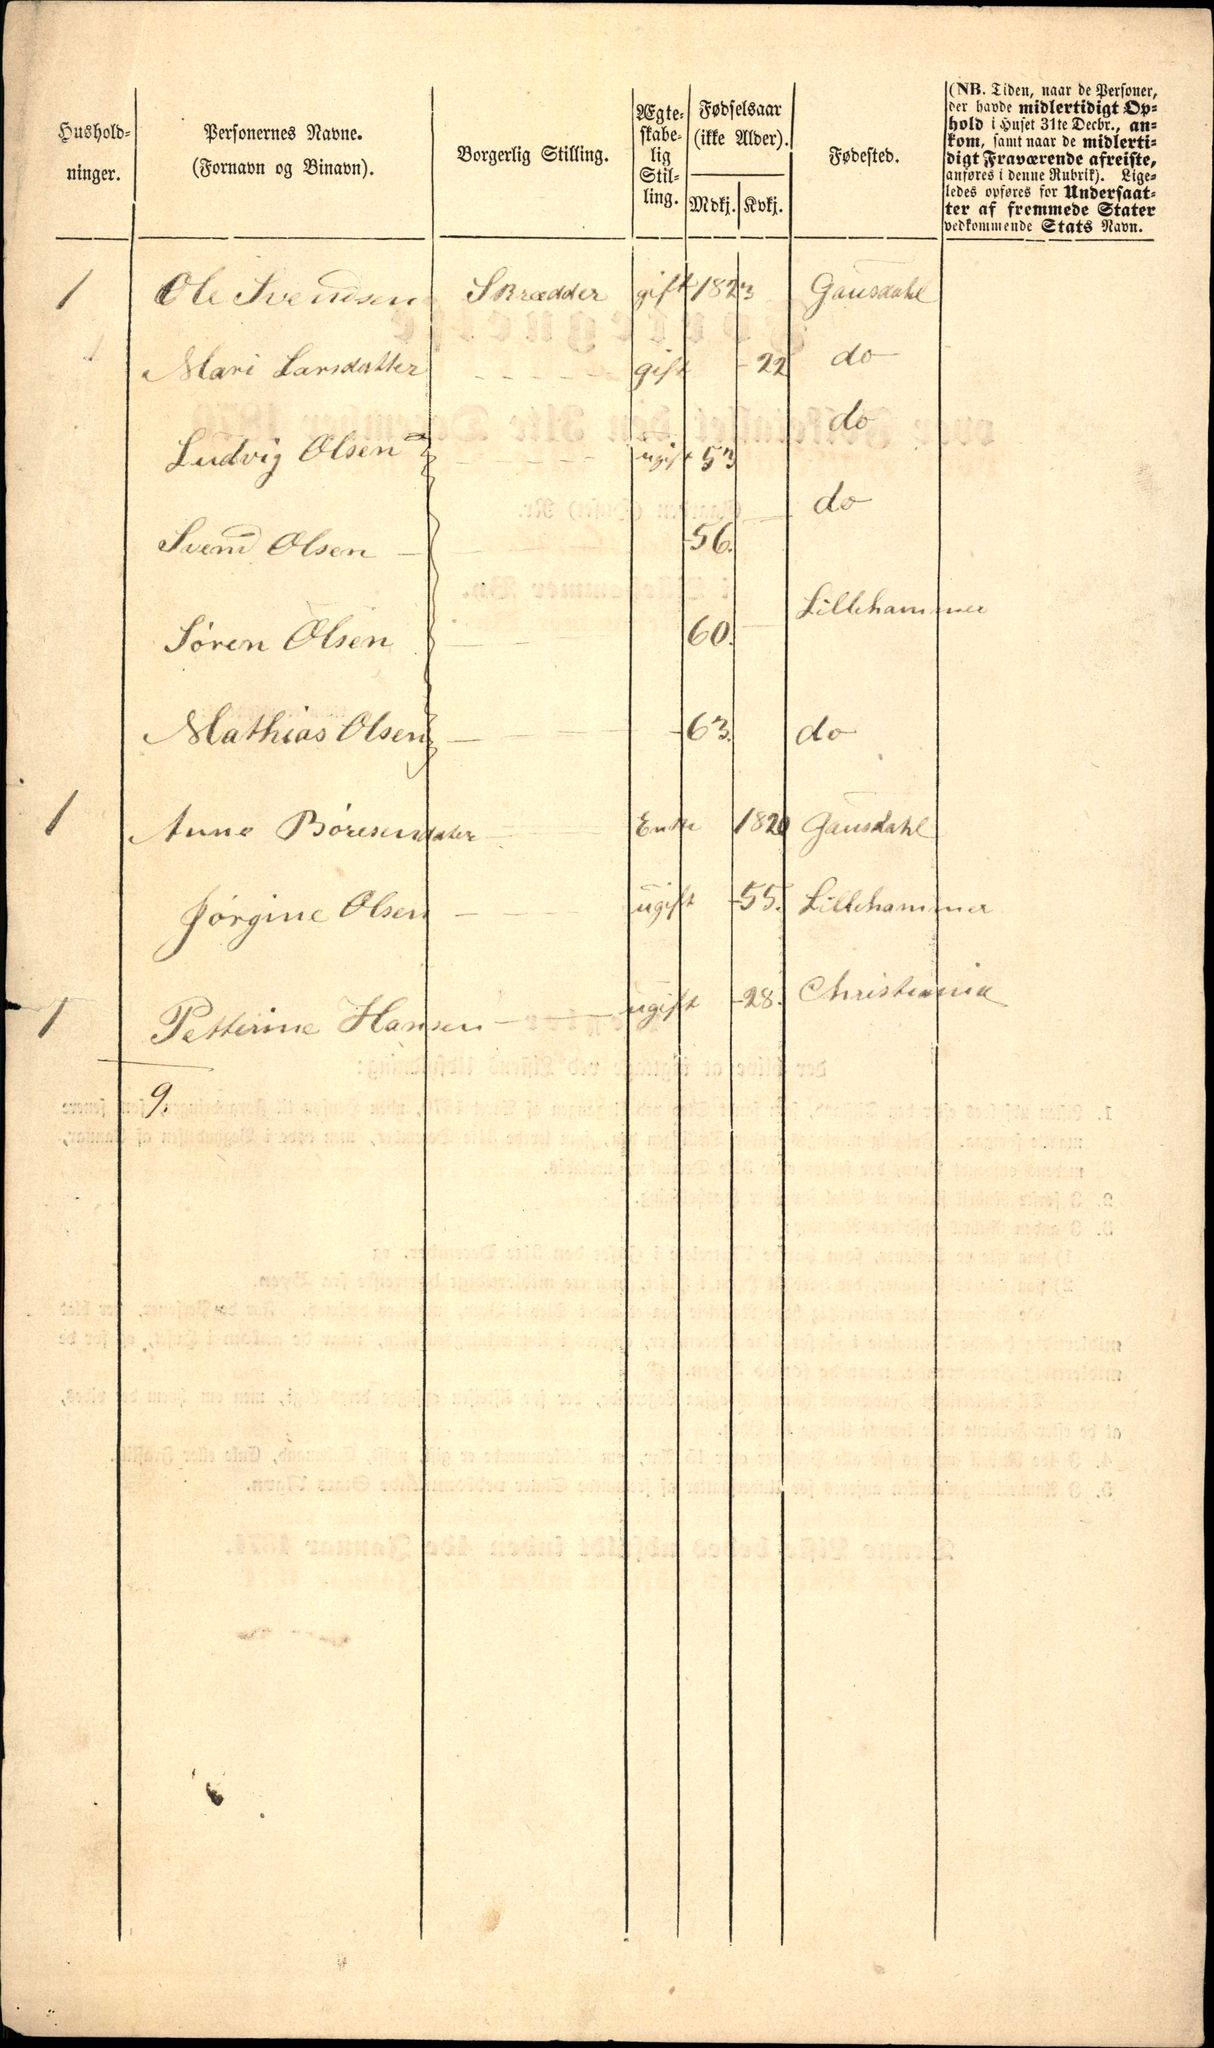 Hushold-
ninger.
Personernes Navne.
(Fornavn og Binavn).
Borgerlig Stilling.
Ægte-
skabe-
lig
Stil-
ling.
Fødselsaar
(ikke Alder).
Mdkj. Kvkj.
Fødested.
(NB. Tiden, naar de Personer,
der havde midlertidigt Op-
hold i Huset 31te Decbr., an-
kom, samt naar de midlerti-
digt Fraværende afreiste,
anføres i denne Rubrik). Lige-
ledes opføres for Undersaat-
ter af fremmede Stater
vedkommende Stats Navn.
1 Ole Svendsen Skrædder gift 1823 Gausdahl
Mari Larsdatter gift - 22 do
Ludvig Olsen ugift 53 do
Svend Olsen - 56. do
Søren Olsen 60. Lillehammer
Mathias Olsen - 63. do
1 Anne Børesendater Enke 1820 Gausdahl
Jørgine Olsen - ugift - 55. Lillehammer
1 Petterine Hansen - ugift - 28. Christiania
9